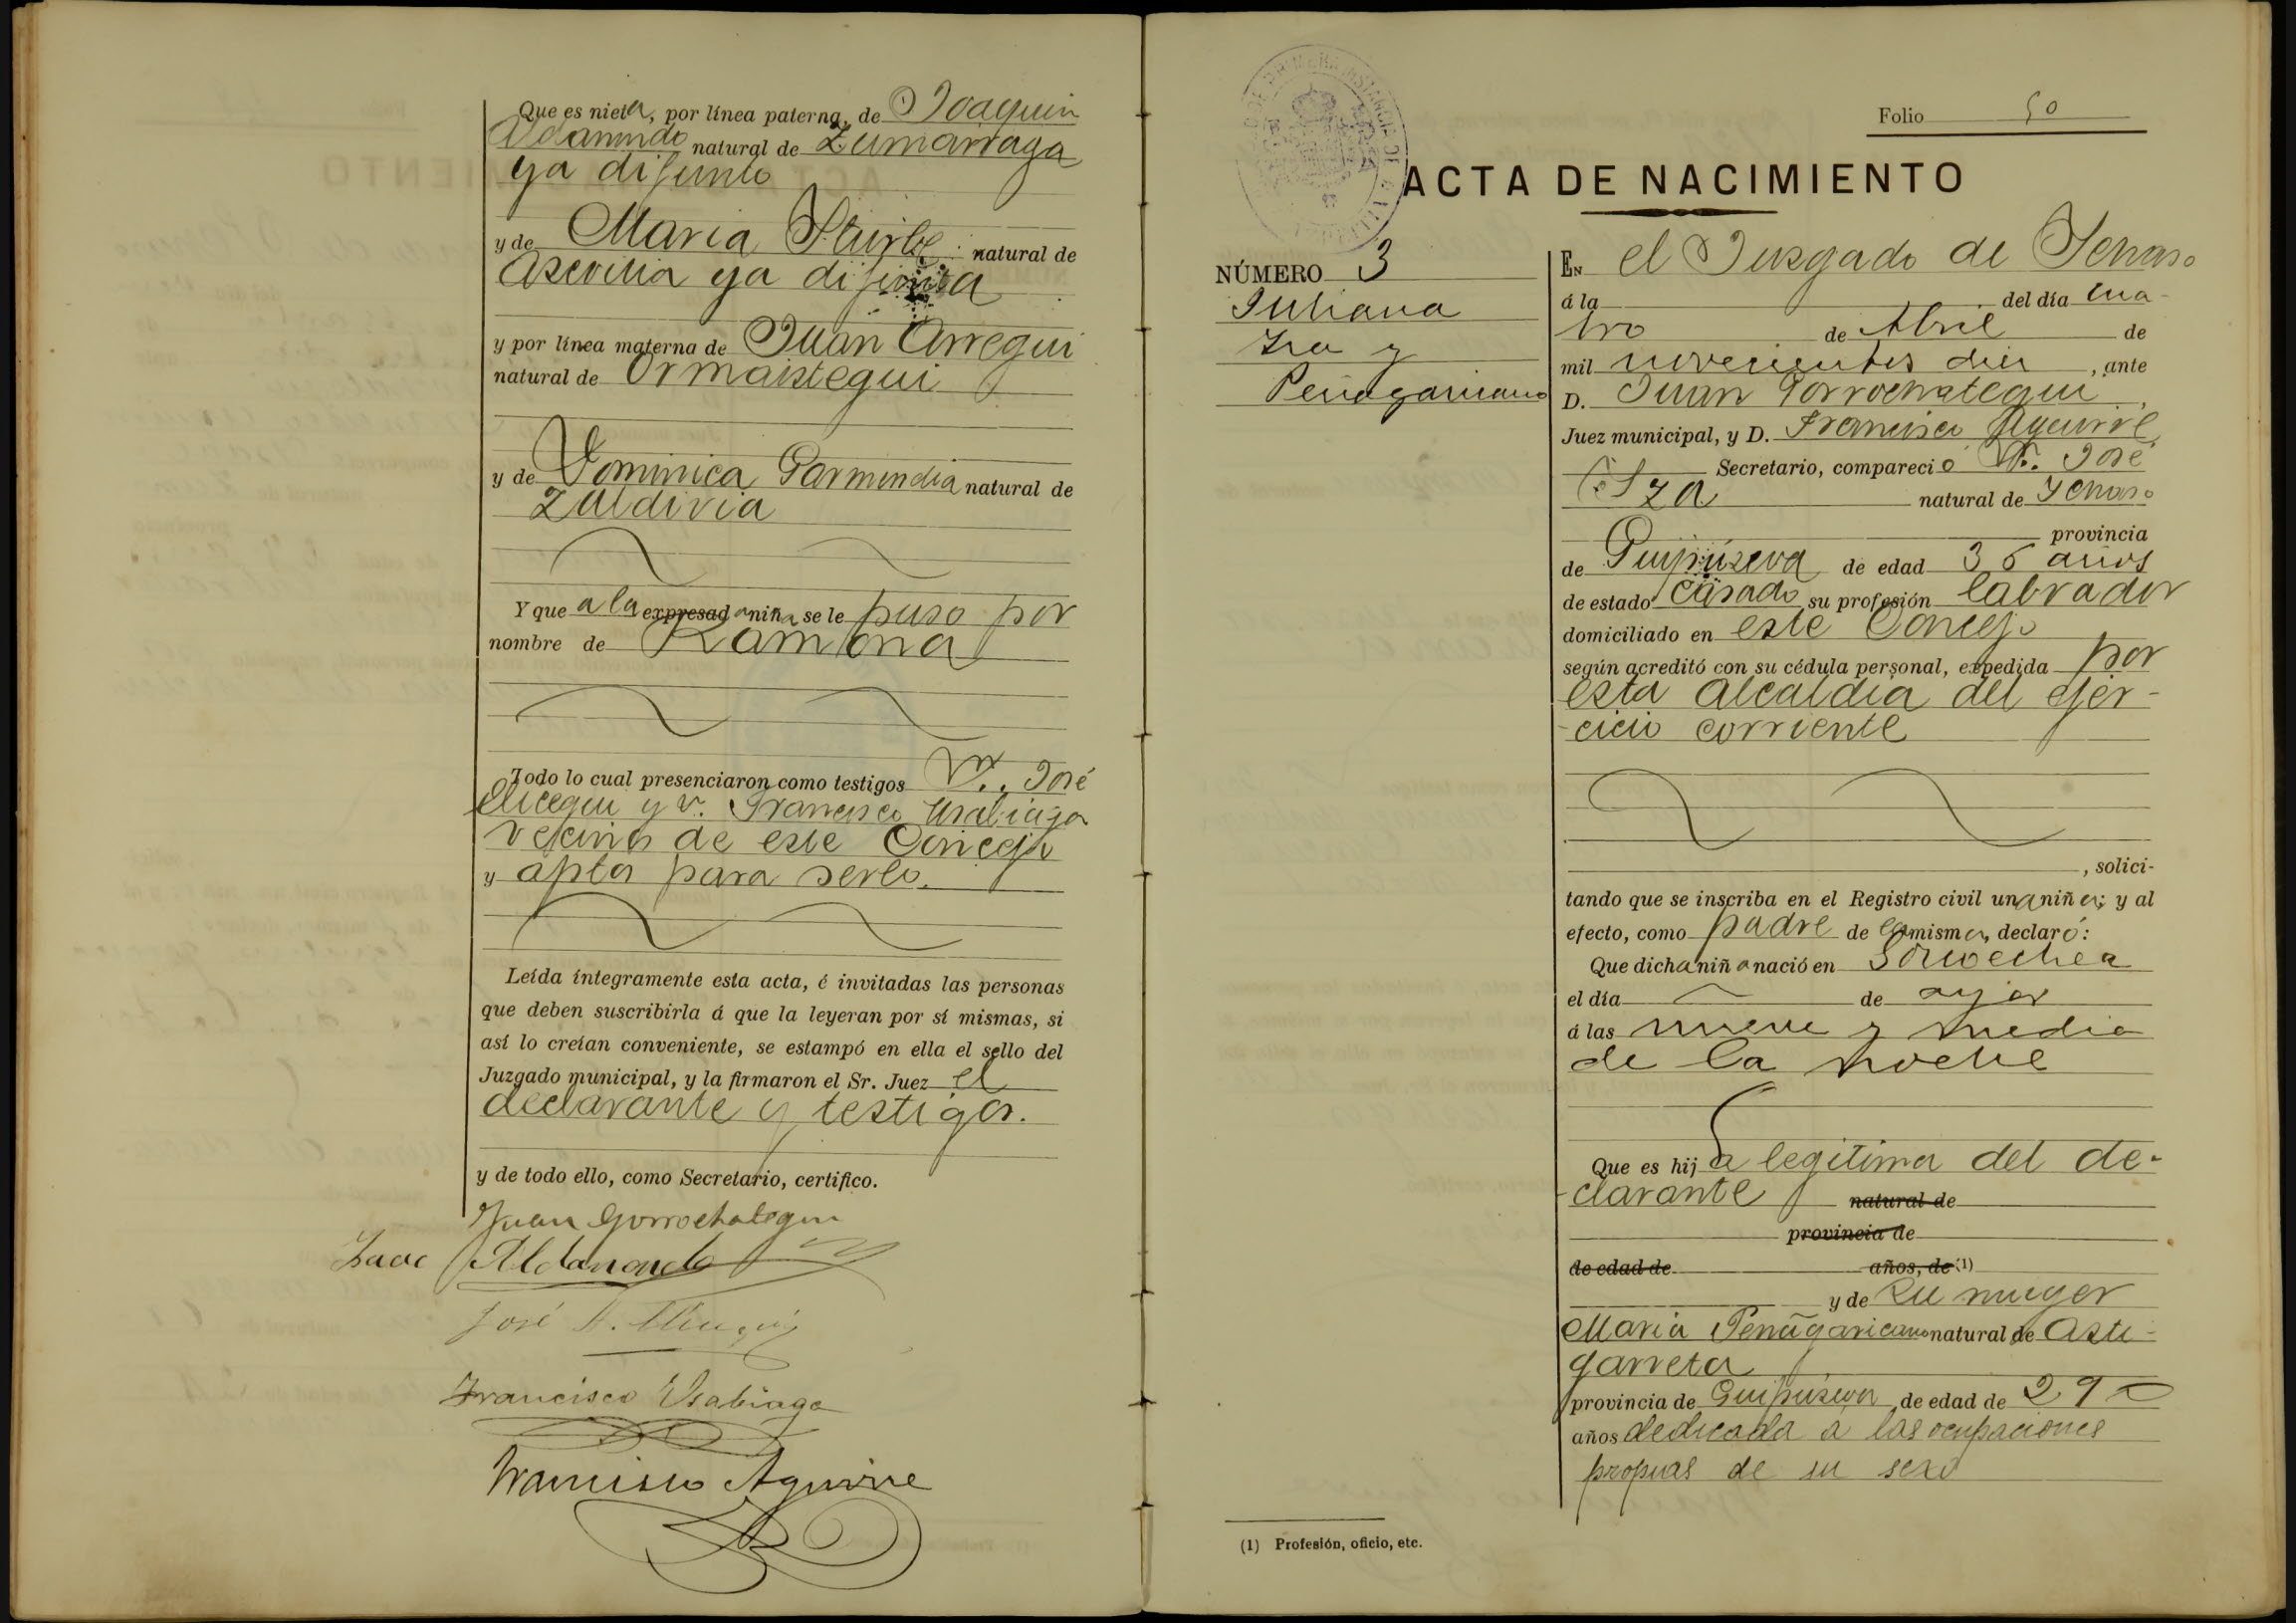 Que es nieta, por línea paterna, de Joaquin
Aldanondo natural de Zumarraga
ya difunto
y de Maria Iturbe natural de
Azcoitia ya difunta
y por línea materna de Juan Arregui
natural de Ormaiztegui
y de Dominica Garmendia natural de
Zaldivia
Y que a la expresada niña se le puso por
nombre de Ramona
Todo lo cual presenciaron como testigos D. José
y D. Francisco Usabiaga
vecinos de este Concejo
y aptos para serlo.
Leída íntegramente esta acta, é invitadas las personas
que deben suscribirla á que la leyeran por sí mismas, si
así lo creían conveniente, se estampó en ella el sello del
Juzgado municipal, y la firmaron el Sr. Juez el
declarante y testigos.
y de todo ello, como Secretario, certifico.
Juan Gorrochategui
Aldanondo
José A.
Francisco Usabiaga
Francisco Aguirre
Folio 50
ACTA DE NACIMIENTO
NÚMERO 3
Juliana
Iza y
Peñagaricano
En el Juzgado de Ichaso
á la del día cua-
tro de Abril de
mil novecientos diez, ante
D. Juan Gorrochategui,
Juez municipal, y D. Francisco Aguirre,
Secretario, compareció D. José
Iza natural de Ychaso
provincia
de Guipúzcoa de edad 36 años
de estado casado su profesión labrador
domiciliado en este Concejo
según acreditó con su cédula personal, expedida por
esta Alcaldia del ejer-
-cicio corriente
, solici-
tando que se inscriba en el Registro civil una niña; y al
efecto, como padre de la misma, declaró:
Que dicha niña nació en
el día de ayer
á las nueve y media
de la noche
Que es hija legitima del de-
-clarante natural de
provincia de
de edad de años, de (1)
y de su muger
Maria Peñagaricano natural de Asti-
garreta
provincia de Guipúzcoa de edad de 29
años dedicada a las ocupaciones
propias de su sexo
(1) Profesión, oficio, etc.